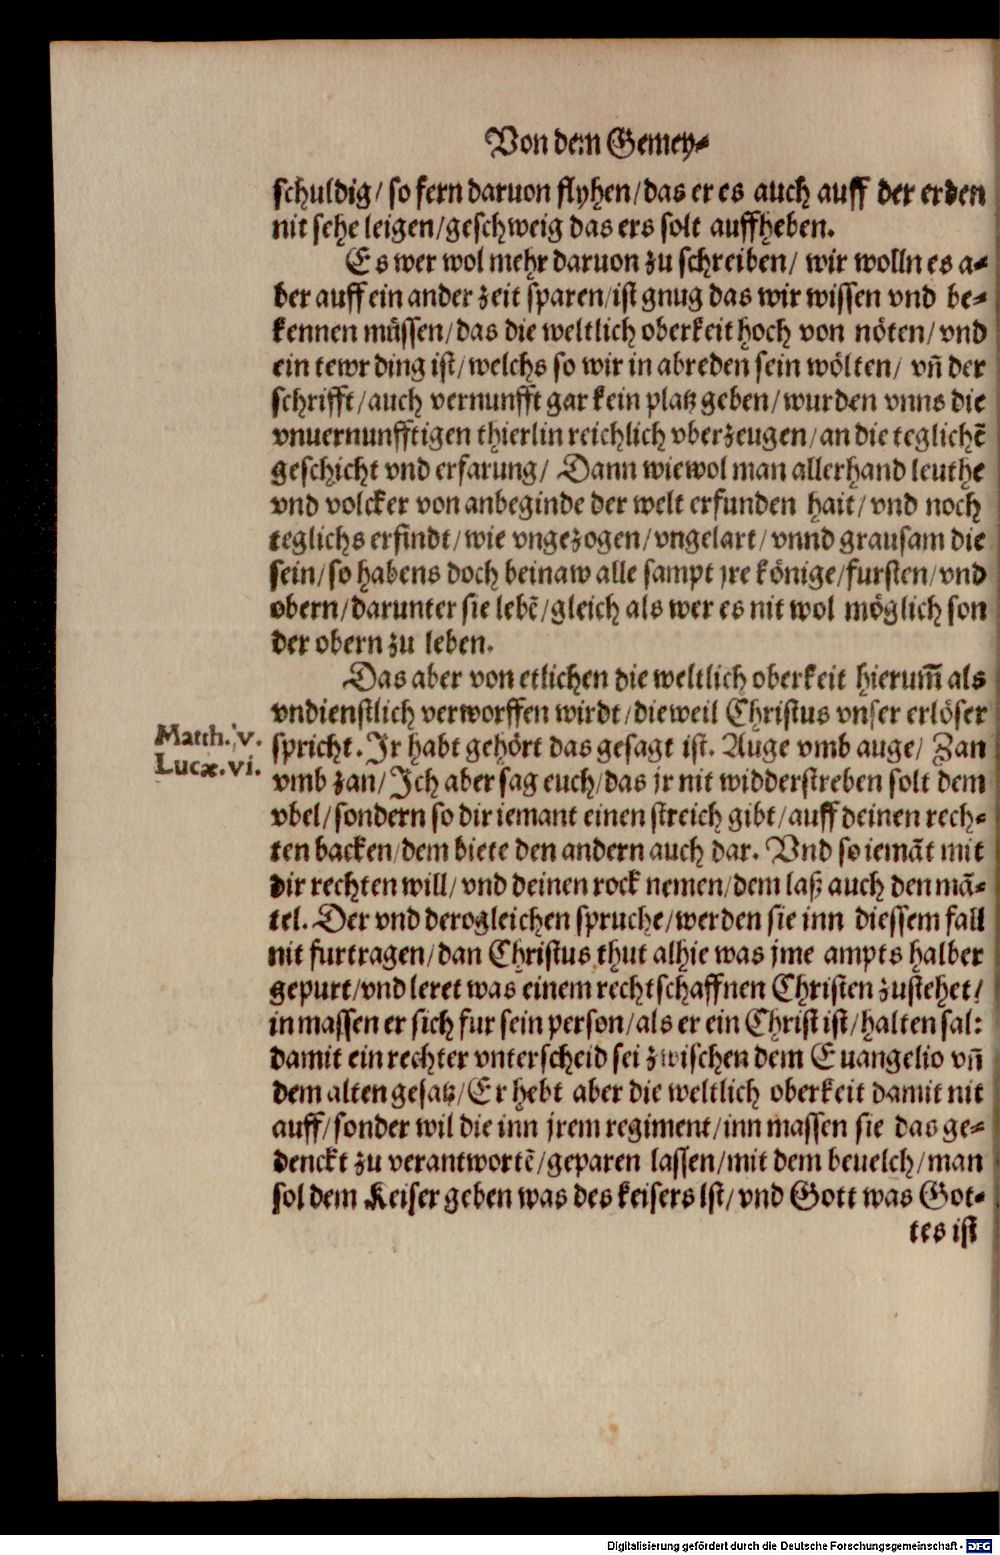 Von dem Gemey⸗
schuldig/ so fern daruon flyhen/das er es auch auff der erden
nit sehe leigen/geschweig das ers solt auffheben.
Es wer wol mehr daruon zu schreiben/ wir wolln es a⸗
ber auff ein ander zeit sparen/ist gnug das wir wissen vnd be⸗
kennen müssen/das die weltlich oberkeit hoch von nöten/vnd
ein tewr ding ist/welchs so wir in abreden sein wölten/ vn̄ der
schrifft/auch vernunfft gar kein platz geben/wurden vnns die
vnuernunfftigen thierlin reichlich vberzeugen/an die teglichē
geschicht vnd erfarung/ Dann wiewol man allerhand leuthe
vnd volcker von anbeginde der welt erfunden hait/vnd noch
teglichs erfindt/wie vngezogen/vngelart/vnnd grausam die
sein/so habens doch beinaw alle sampt jre könige/fursten/vnd
obern/darunter sie lebē/gleich als wer es nit wol möglich son
der obern zu leben.
Das aber von etlichen die weltlich oberkeit hierum̄ als
vndienstlich verworffen wirdt/dieweil Christus vnser erlöser
Matth. v.
Lucæ. vi.
spricht. Jr habt gehört das gesagt ist. Auge vmb auge/ Zan
vmb zan/Jch aber sag euch/das jr nit widderstreben solt dem
vbel/sondern so dir iemant einen streich gibt/auff deinen rech⸗
ten backen/dem biete den andern auch dar. Vnd so iemāt mit
dir rechten will/vnd deinen rock nemen/dem laß auch den mā⸗
tel. Der vnd derogleichen spruche/werden sie inn diessem fall
nit furtragen/dan Christus thut alhie was jme ampts halber
gepurt/vnd leret was einem rechtschaffnen Christen zustehet/
in massen er sich fur sein person/als er ein Christ ist/halten sal:
damit ein rechter vnterscheid sei zwischen dem Euangelio vn̄
dem alten gesatz/Er hebt aber die weltlich oberkeit damit nit
auff/sonder wil die inn jrem regiment/inn massen sie das ge⸗
denckt zu verantwortē/geparen lassen/mit dem beuelch/man
sol dem Keiser geben was des keisers Ist/vnd Gott was Got⸗
tes ist
Digitalisierung gefördert durch die Deutsche Forschungsgemeinschaft - DFG